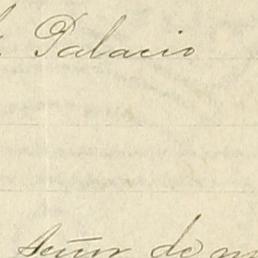 Palacio
señor de